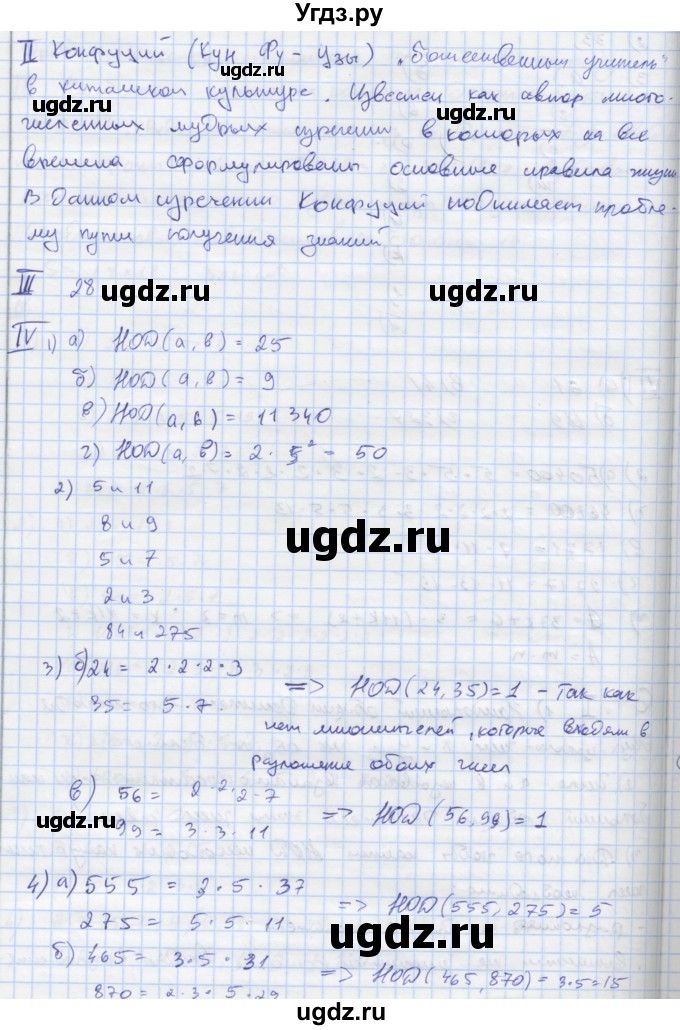 Угдз.ру
II Конфуций (Кун Фу-Цзы) „Божественный учитель“
в китайской культуре. Известен как автор много-
численных мудрых изречений в которых на все
времена сформулированы основные правила жизни
В данном изречении Конфуций поднимает пробле-
му пути получения знаний
III 28
IV 1) а) НОD(а, в) = 25
б) НОD(а, в) = 9
в) НОD(а, в) = 11340
г) НОD(а, в) = 2 · 5² = 50
2) 5 и 11
8 и 9
5 и 7
2 и 3
84 и 275
3) б) 24 = 2 · 2 · 2 · 3
35 = 5 · 7 .
=> НОD(24, 35) = 1 - Так как
нет множителей, которые входят в
разложение обоих чисел
в) 56 = 2 · 2 · 2 · 7
99 = 3 · 3 · 11
=> НОD(56, 99) = 1
4) а) 555 = 2 · 5 · 37
275 = 5 · 5 · 11
=> НОD(555, 275) = 5
б) 465 = 3 · 5 · 31
870 = 2 · 3 · 5 · 29
=> НОD(465, 870) = 3·5=15
ugdz.ru
ugdz.ru
ugdz.ru
ugdz.ru
ugdz.ru
ugdz.ru
ugdz.ru
ugdz.ru
ugdz.ru
Угдз.ру